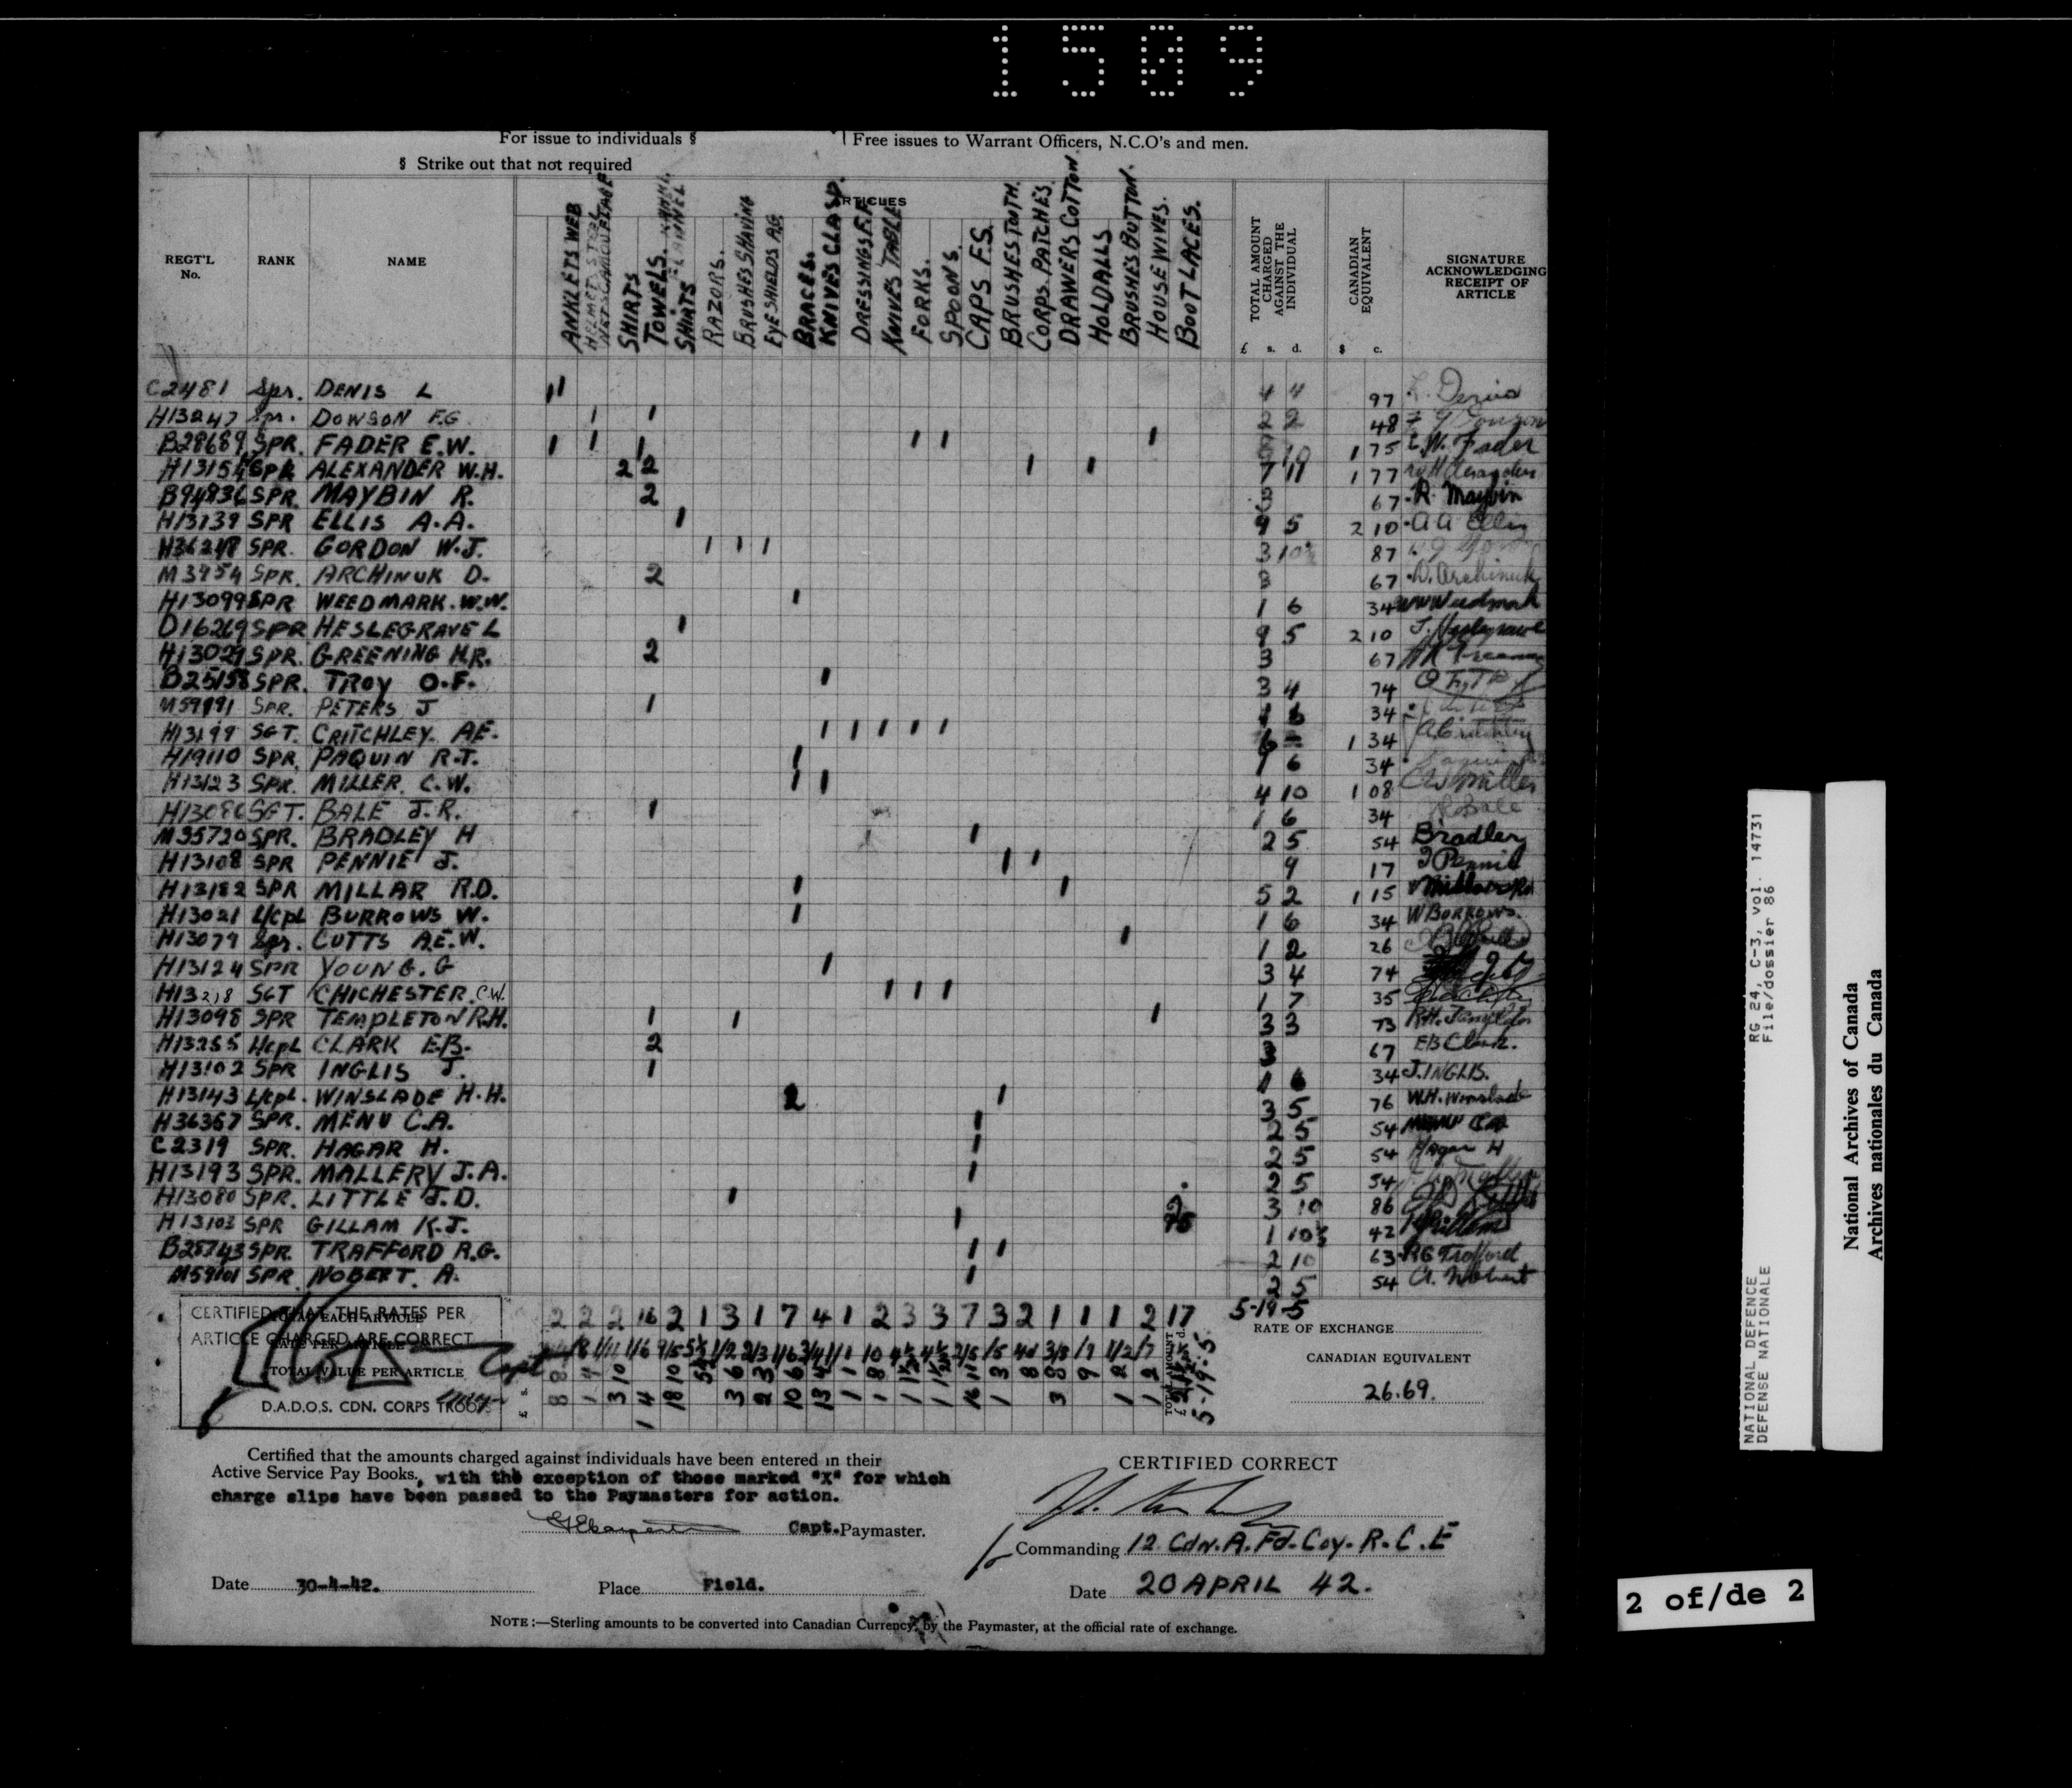 1509
For issue to individuals § Free issues to Warrant Officers, N.C.O's and men.
§ Strike out that not required
ARTICLES
REGT'L No. RANK NAME ANKLETS WEB HELMETS STEEL NETS CAMOUFLAGE SHIRTS TOWELS. HAND. SHIRTS FLANNEL RAZORS. BRUSHES SHAVING EYESHIELDS A.G. BRACES. KNIVES CLASP. DRESSINGS F.F. KNIVES TABLE FORKS. SPOONS. CAPS F.S. BRUSHES TOOTH. CORPS. PATCHES. DRAWERS COTTON. HOLDALLS BRUSHES BUTTON. HOUSEWIVES. BOOT LACES. TOTAL AMOUNT CHARGED AGAINST THE INDIVIDUAL £ s. d. CANADIAN EQUIVALENT $ c. SIGNATURE ACKNOWLEDGING RECEIPT OF ARTICLE
C2481 Spr. DENIS L 11 4 4 97 L. Denis
H13247 Spr. DOWSON F.G 1 1 2 2 48
B28689 SPR. FADER E.W. 1 1 1 1 1 1 10 1 75 E.W. Fader
SPR ALEXANDER W.H. 2 2 1 1 7 11 1 77
B94836 SPR. MAYBIN R. 2 3 67 R. Maybin
H13139 SPR ELLIS A.A. 1 9 5 2 10 A A Ellis
H36248 SPR. GORDON W.J. 1 1 1 3 10½ 87
M3954 SPR. ARCHINUK D. 2 3 67 D. Archinuk
H13099 SPR WEEDMARK. W.W. 1 1 6 34 WW Weedmark
D16269 SPR HESLEGRAVE L 1 9 5 2 10
H13029 SPR. GREENING H.R. 2 3 67
B25158 SPR. TROY O.F. 1 3 4 74
SPR. PETERS J 1 1 6 34
H13199 SGT. CRITCHLEY. AE. 1 1 1 1 1 6 - 1 34 A. Critchley
H19110 SPR. PAQUIN R.T. 1 1 6 34
H13123 SPR. MILLER. C.W. 1 1 4 10 1 08 CW Miller
H13086 SGT. BALE J.R. 1 1 6 34 JR Bale
M35720 SPR. BRADLEY H 1 2 5 54 Bradley
H13108 SPR PENNIE J. 1 1 9 17 J Pennie
H13182 SPR MILLAR R.D. 1 1 5 2 1 15
H13021 L/cpl BURROWS W. 1 1 6 34 W BURROWS.
H13079 Spr. CUTTS A.E.W. 1 1 2 26
H13124 SPR YOUNG. G 1 3 4 74
H13218 SGT CHICHESTER. C.W. 1 1 1 1 7 35
H13098 SPR TEMPLETON R.H. 1 1 1 3 3 73 R.H. Templeton
H13255 L/cpl CLARK E.B. 2 3 67 EB Clark.
H13102 SPR INGLIS J. 1 1 6 34 J. INGLIS.
H13143 L/cpl. WINSLADE H.H. 2 1 3 5 76 W.H. Winslade
H36367 SPR. MENU C.A. 1 2 5 54 MENU C.A.
C2319 SPR. HAGAR H. 1 2 5 54 Hagar H
H13193 SPR. MALLERY J.A. 1 2 5 54
H13080 SPR. LITTLE J.D. 1 3 10 86
H13103 SPR GILLAM K.J. 1 1 10½ 42
B25743 SPR. TRAFFORD R.G. 1 1 2 10 63 RG Trafford
SPR. NOBERT. A. 1 2 5 54 A. Nobert
CERTIFIED THAT THE RATES PER
ARTICLE CHARGED ARE CORRECT
Capt
D.A.D.O.S. CDN. CORPS TROOPS
TOTAL EACH ARTICLE 2 2 2 16 2 1 3 1 7 4 1 2 3 3 7 3 2 1 1 1 2 17 5-19-5
RATE PER ARTICLE
TOTAL VALUE PER ARTICLE
TOTAL AMOUNT 5-19-5
RATE OF EXCHANGE
CANADIAN EQUIVALENT
26.69.
Certified that the amounts charged against individuals have been entered in their
Active Service Pay Books, with the exception of those marked "X" for which
charge slips have been passed to the Paymasters for action.
Capt. Paymaster.
Date 30-4-42. Place Field.
CERTIFIED CORRECT
Commanding 12 Cdn. A. Fd. Coy. R.C.E
Date 20 APRIL 42.
NOTE:—Sterling amounts to be converted into Canadian Currency, by the Paymaster, at the official rate of exchange.
NATIONAL DEFENCE RG 24, C-3, vol. 14731
DEFENSE NATIONALE File/dossier 86
National Archives of Canada
Archives nationales du Canada
2 of/de 2